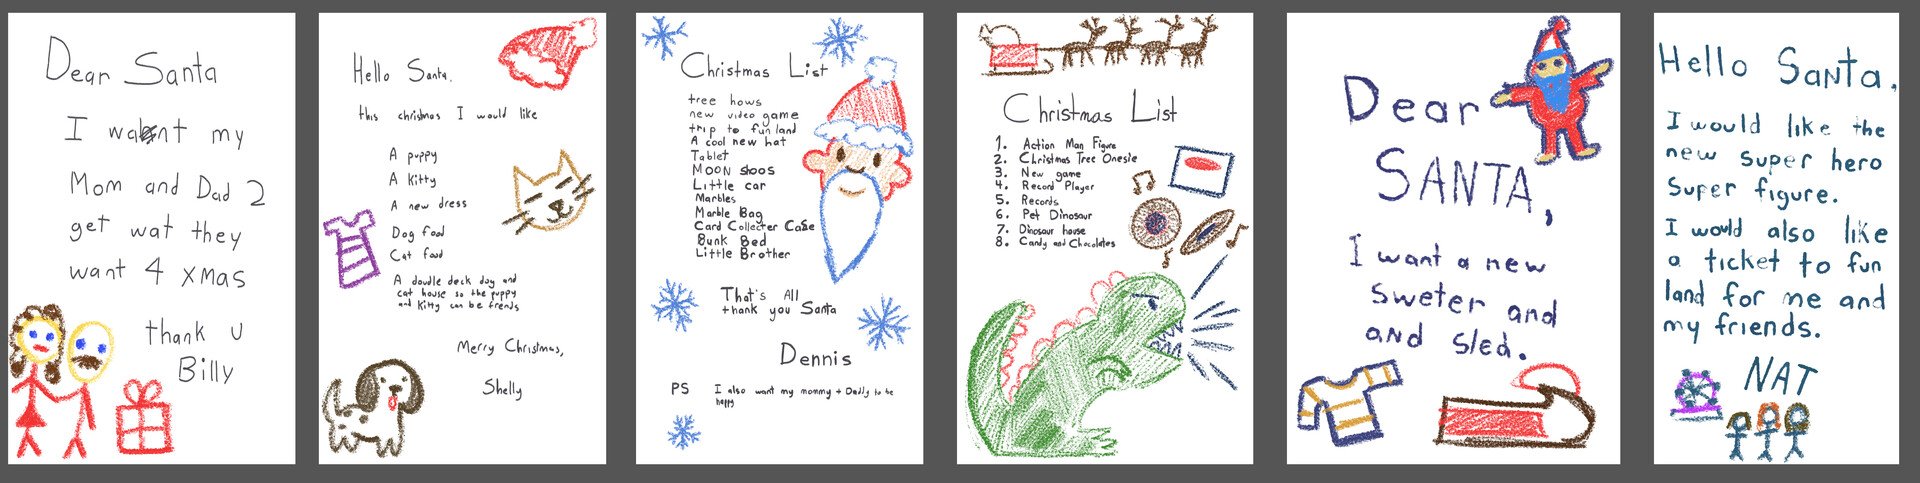 Dear Santa
I want my
Mom and Dad 2
get wat they
want 4 xmas
thank u
Billy
Hello Santa.
this christmas I would like
A puppy
A kitty
A new dress
Dog food
Cat food
A double deck dog and
cat house so the puppy
and kitty can be frends
Merry Christmas,
Shelly
Christmas List
tree hows
new video game
trip to fun land
A cool new hat
Tablet
Moon shoos
Little car
Marbles
Marble Bag
Card Collecter Case
Bunk Bed
Little Brother
That's All
thank you Santa
Dennis
PS I also want my mommy + Daddy to be
happy
Christmas List
1. Action Man Figure
2. Christmas Tree Onesie
3. New game
4. Record Player
5. Records
6. Pet Dinosaur
7. Dinosaur house
8. Candy and Chocolates
Dear
SANTA,
I want a new
sweter and
and sled.
Hello Santa,
I would like the
new super hero
super figure.
I would also like
a ticket to fun
land for me and
my friends.
NAT